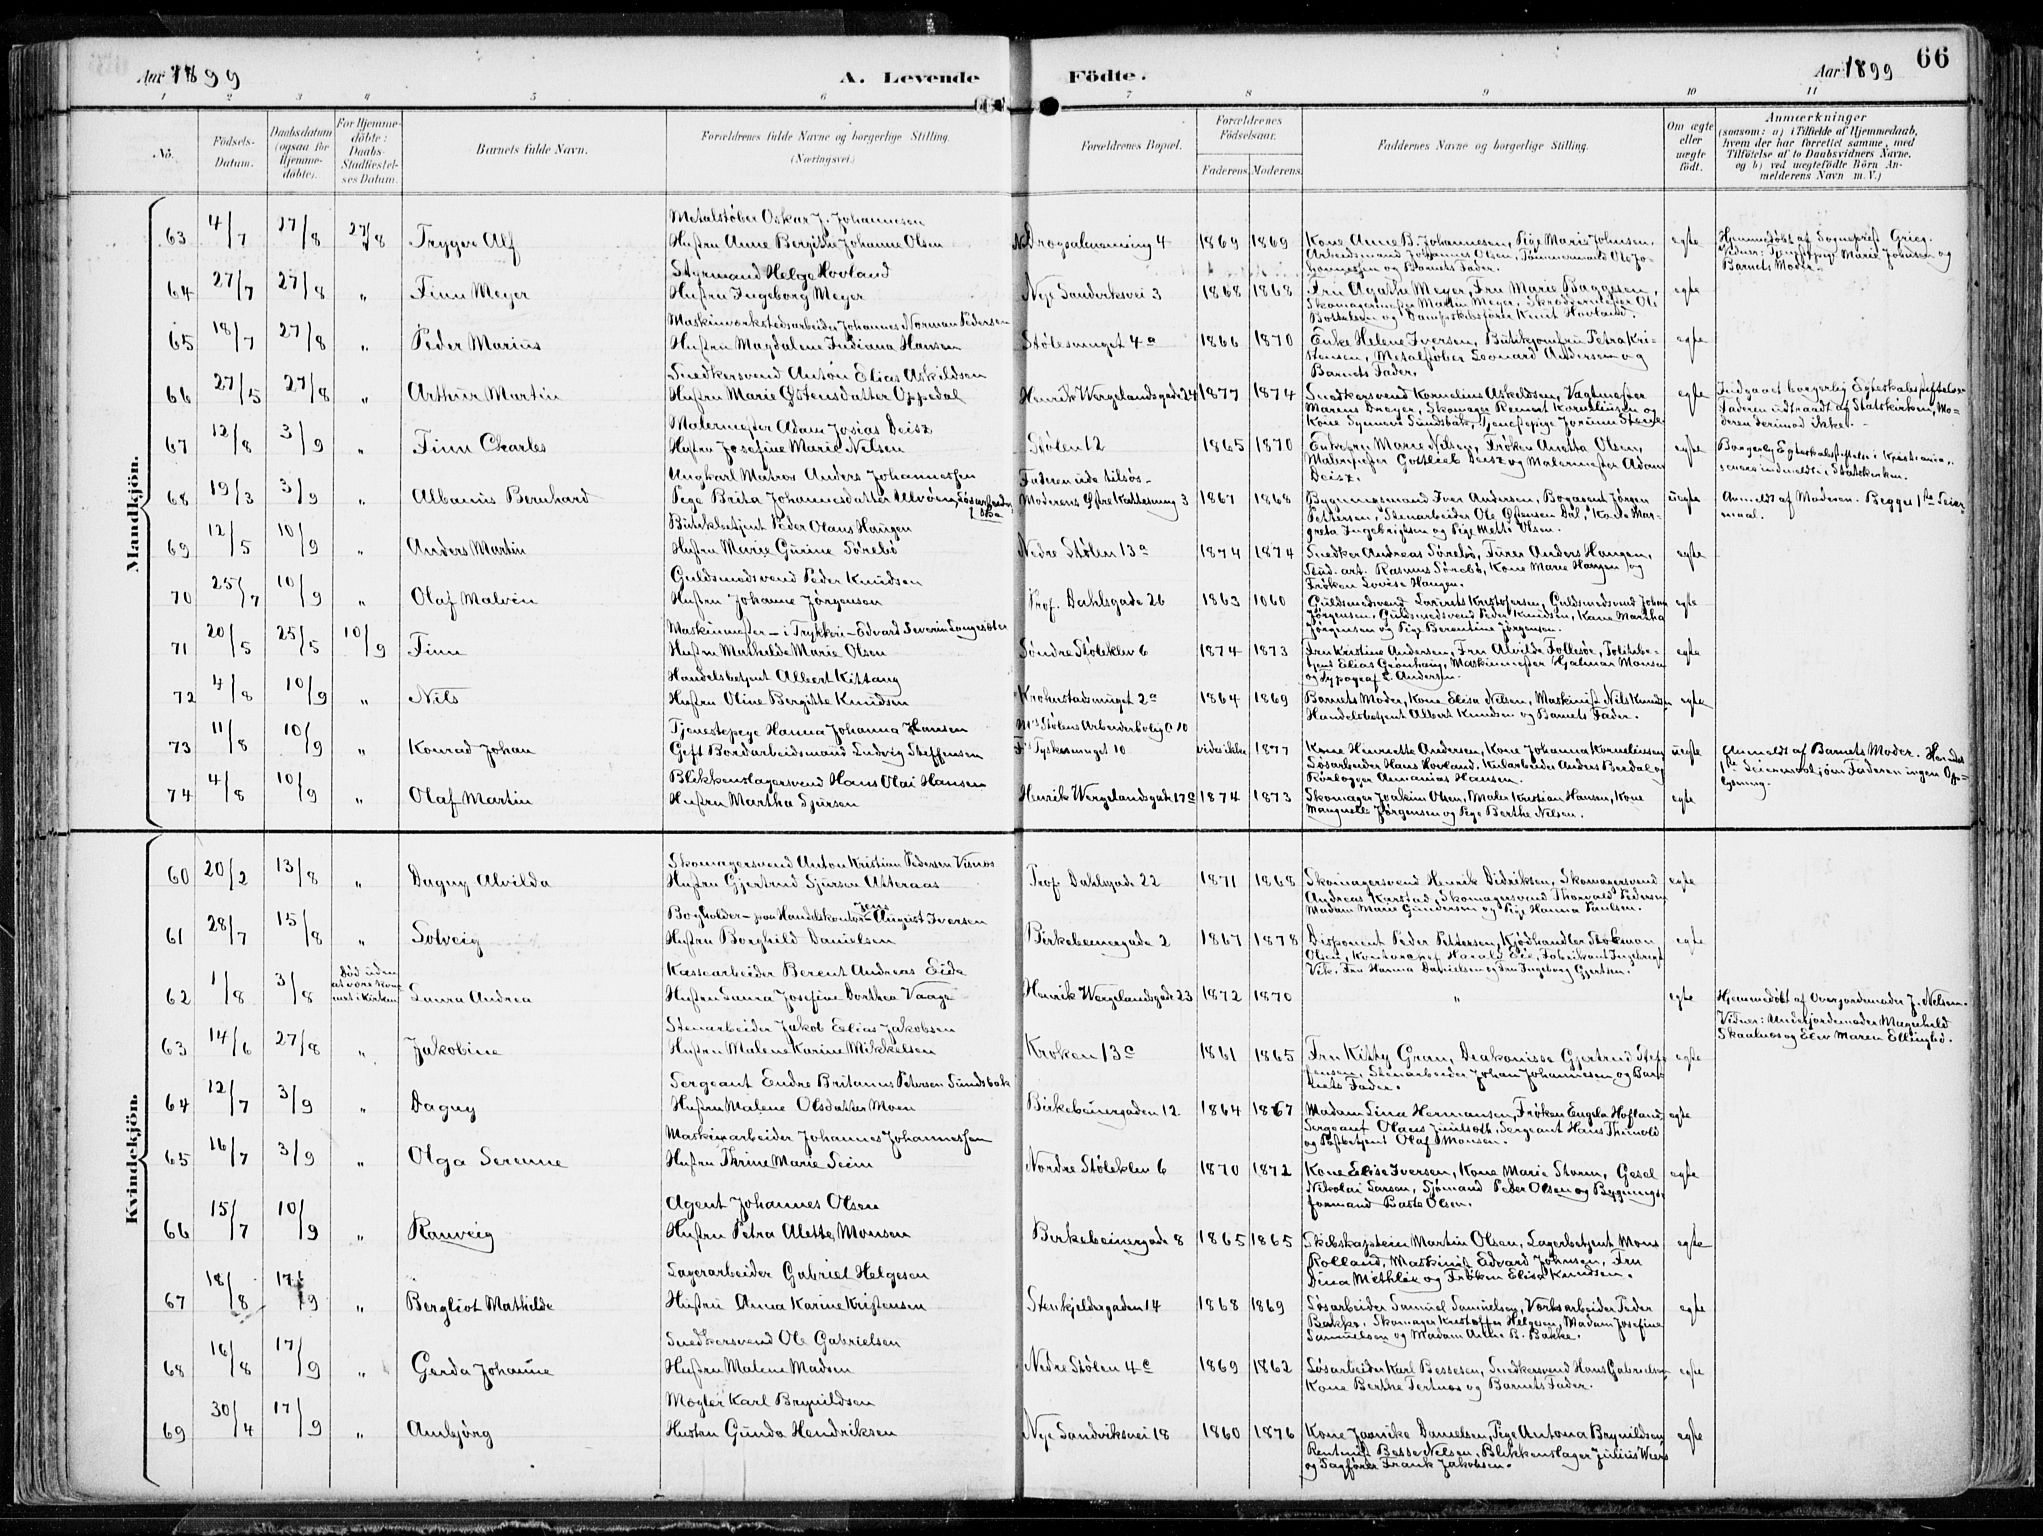 Aar 1899
A. Levende
Födte.
Aar 1899
66
1 2 3 4 5 6 7 8 9 10 11
No.
Födsels-Datum.
Daabsdatum (ogsaa for Hjemme-döbte).
For Hjemme-döbte: Daabs-Stadfæstel-ses Datum.
Barnets fulde Navn.
Forældrenes fulde Navne og borgerlige Stilling.
(Næringsvei.)
Forældrenes Bopæl.
Forældrenes Födselsaar.
Faderens. Moderens.
Faddernes Navne og borgerlige Stilling.
Om ægte eller uægte födt.
Anmærkninger
(saasom: a) i Tilfælde af Hjemmedaab,
hvem der har forrettet samme, med
Tilföielse af to Daabsvidners Navne,
og b) ved uægtefödte Börn An-
melderens Navn m. V.)
Mandkjön.
63 4/7 27/8 27/8 Trygve Alf
Metalstøber Oskar J. Johannesen
Hustru Anne Bergithe Johanne Olsen
Drægealmening 4 1869 1869
Kone Anne B. Johannesen, Pige Marie Johnsen,
Arbeidsmand Johannes Olsen, Tømmermand Ole Jo-
hannessen og Barnets Fader.
egte
Hjemmedøbt af Sognepræst Grieg.
Vidner: Marie Johnsen og
Barnets Moder.
64 27/7 27/8 " Finn Meyer
Styrmand Helge Hovland
Hustru Ingeborg Meyer
Nye Sandviksvei 3 1868 1868
Fru Agathe Meyer, Fru Marie Baggesen,
Skomagermester Martin Meyer, Skræddermester Ole
Bottelsen og Dampskibsfører Knut Hovland.
egte
65 18/7 27/8 " Peder Marius
Maskinværkstedsarbeider Johannes Norman Pedersen
Hustru Magdalene Indiana Hansen
Stølesmuget 4a 1866 1870
Enke Helene Iversen, Butikjomfru Petra Kri-
stensen, Metalstøber Leonard Andersen og
Barnets Fader.
egte
66 27/5 27/8 " Arthur Martin
Snedkersvend Anton Elias Askildsen
Hustru Marie Østensdatter Oppedal
Henrik Wergelandsgade 24 1877 1874
Snedkersvend Kornelius Askeldsen, Vagtmester
Marens Dreyer, Skomager Reinert Korneliussen og
Kone Synnøve Sundsbak, Tjenestepige Jorunn
egte
Indgaaet borgerlig Egteskabsstiftelse.
Faderen udtraadt af Statskirken, Mo-
deren derimod ikke.
67 12/8 3/9 " Finn Charles
Malermester Adam Josias Deisz
Hustru Josefine Marie Nelsen
Stølen 12 1865 1870
Enkefru Marie Nelsen, Frøken Anetta Olsen,
Malermester Gottlieb Deisz og Malermester Adam
Deisz.
egte
Borgerlig Egteskabsstiftelse i Kristiania,
senere indmeldt i Statskirken.
68 19/3 3/9 " Albanus Bernhard
Ungkarl Matros Anders Johannessen
Pige Brita Johannesdatter
Faderen ude tilsøs.
Moderens Øfre Kattesmug 3 1867 1868
Bygningsmand Iver Andersen, Bogagent Jørgen
Pettersen, Stenarbeider Ole Østensen Dal, Kone Mar-
greta Ingebrigtsen og Pige Metti Olsen.
uegte
Anmeldt af Moderen. Begges 1ste Leier-
maal.
69 12/5 10/9 " Anders Martin
Butikbetjent Peder Olaus Haugen
Hustru Marie Gurine Sørebø
Nedre Stølen 13a 1874 1874
Snedker Andreas Sørebø, Furer Anders Haugen,
Stud. art. Rasmus Sørebø, Kone Marie Haugen og
Frøken Lovise Haugen.
egte
70 25/7 10/9 " Olaf Malvin
Guldsmedsvend Peder Knudsen
Hustru Johanne Jørgensen
Prof. Dahlsgade 26 1863 1060
Guldsmedsvend Laurits Kristofersen, Guldsmedsvend Johan
Jørgensen, Guldsmedsvend Peder Knudsen, Kone Martha
Jørgensen og Pige Berentine Jørgensen.
egte
71 20/5 25/5 10/9 Finn
Maskinmester – i Trykkeri – Edvard Severin Langesæter
Hustru Mathilde Marie Olsen
Søndre Støleklev 6 1874 1873
Fru Kristine Andersen, Fru Alvilde Follesøe, Politibe-
tjent Elias Grønhaug, Maskinmester Hjalmar Monsen
og Typograf E. Andersen.
egte
72 4/8 10/9 " Nils
Handelsbetjent Albert Kittang
Hustru Oline Bergitte Knudsen
Krohnstadsmuget 2a 1864 1869
Barnets Moder, Kone Elisa Nelsen, Maskinist Nils Knudsen
Handelsbetjent Albert Knudsen og Barnets Fader.
egte
73 11/8 10/9 " Konrad Johan
Tjenestepige Hanna Johanna Hansen
Gift Bordarbeidsmand Ludvig Steffensen
Ms Stølens Arbeiderbolig C 10
Fs Tyskesmuget 10 vides ikke 1877
Kone Henriette Andersen, Kone Johanna Kornelinssen
Løsarbeider Hans Hovland, Kularbeider Anders Berdal og
Rørlægger Amanias Hansen.
uegte
Anmeldt af Barnets Moder. Hendes
1ste Leiermaal, om Faderen ingen Op-
lysning.
74 4/8 10/9 " Olaf Martin
Blikkenslagersvend Hans Olai Hansen
Hustru Martha Sjursen
Henrik Wergelandsgade 17a 1874 1873
Skomager Joakim Olsen, Maler Kristian Hansen, Kone
Jørgensen og Pige Berthe Nelsen.
egte
Kvindekjön.
60 20/2 13/8 " Dagny Alvilda
Skomagersvend Anton Kristian Pedersen Visnes
Hustru Gjertrud Sjursen Atteraas
Prof. Dahlsgade 22 1871 1868
Skomagersvend Henrik Didriksen, Skomagersvend
Andreas Karstad, Skomagersvend Thorvald Pedersen
Madam Marie Gundersen og Pige Hanna Paulsen.
egte
61 28/7 15/8 " Solveig
Bogholder – paa Handelskontor – Jens August Iversen
Hustru Borghild Danielsen
Birkebeinergade 2 1867 1878
Disponent Peder Pettersen, Kjødhandler Stokman
Olsen, Kontorchef Harald Eie, Fabrikant Ingebrigt
Vik, Fru Hanna Danielsen og Fru Ingeborg Gjertsen.
egte
62 1/8 3/8 Død uden at være frem-
met i Kirken Laura Andrea
Kassearbeider Berent Andreas Eide
Hustru Laura Josefine Dorthea Vaage
Henrik Wergelandsgade 23 1872 1870 "
egte
Hjemmedøbt af Overjordemoder J. Nelsen.
Vidner: Underjordemoder Magnhild
Skaalnes og Elev Maren Ellingbø.
63 14/6 27/8 " Jakobine
Stenarbeider Jakob Elias Jakobsen
Hustru Malene Karine Mikkelsen
Kroken 13c 1861 1865
Fru Kitty Gran, Diakonisse Gjertrud Stef-
fensen, Stenarbeider Johan Johannesen og Bar-
nets Fader.
egte
64 12/7 3/9 " Dagny
Sergeant Endre Britanus Petersen Sundsbak
Hustru Malene Olsdatter Moen
Birkebeinergaden 12 1864 1867
Madam Lina Hermansen, Frøken Engela Hofland,
Sergeant Olaus Sergeant Hans
og Postbetjent Olaf Monsen.
egte
65 16/7 3/9 " Olga Serenne
Maskinarbeider Johannes Johannessen
Hustru Thrine Marie Seim
Nordre Støleklev 6 1870 1872
Kone Elise Iversen, Kone Marie Storm, Gesel
Nikolai Larsen, Sjømand Peder Olsen og Bygnings-
formand Baste Olsen.
egte
66 15/7 10/9 " Ranveig
Agent Johannes Olsen
Hustru Petra Alette Monsen
Birkebeinergade 8 1865 1865
Skibskaptein Martin Olsen, Lagerbetjent Mons
Rolland, Maskinist Edvard Johnsen, Fru
Dina Methlie og Frøken Elisa Knudsen.
egte
67 18/8 17/9 " Bergliot Mathilde
Lagerarbeider Gabriel Helgesen
Hustru Anna Karine Kristensen
Stenkjeldergaden 14 1868 1869
Løsarbeider Samuel Samuelsen, Værksarbeider Peder
Bakke, Skomager Kristoffer Helgesen, Madam Josefine
Samuelsen og Madam Anne B. Bakke.
egte
68 16/8 17/9 " Gerda Johanne
Snedkersvend Ole Gabrielsen
Hustru Malene Madsen
Nedre Stølen 4c 1869 1862
Løsarbeider Karl Bessesen, Snedkersvend Hans Gabrielsen,
Kone Berthe Tertnes og Barnets Fader.
egte
69 30/4 17/9 " Ambjørg
Mægler Karl Brynildsen
Hustru Gunda Hendriksen
Nye Sandviksvei 18 1860 1876
Kone Jannike Danielsen, Pige Antona Brynildsen
Rentenist Besse Nelsen, Blikkenslager Julius Weers
og Sagfører Frank Jakobsen.
egte